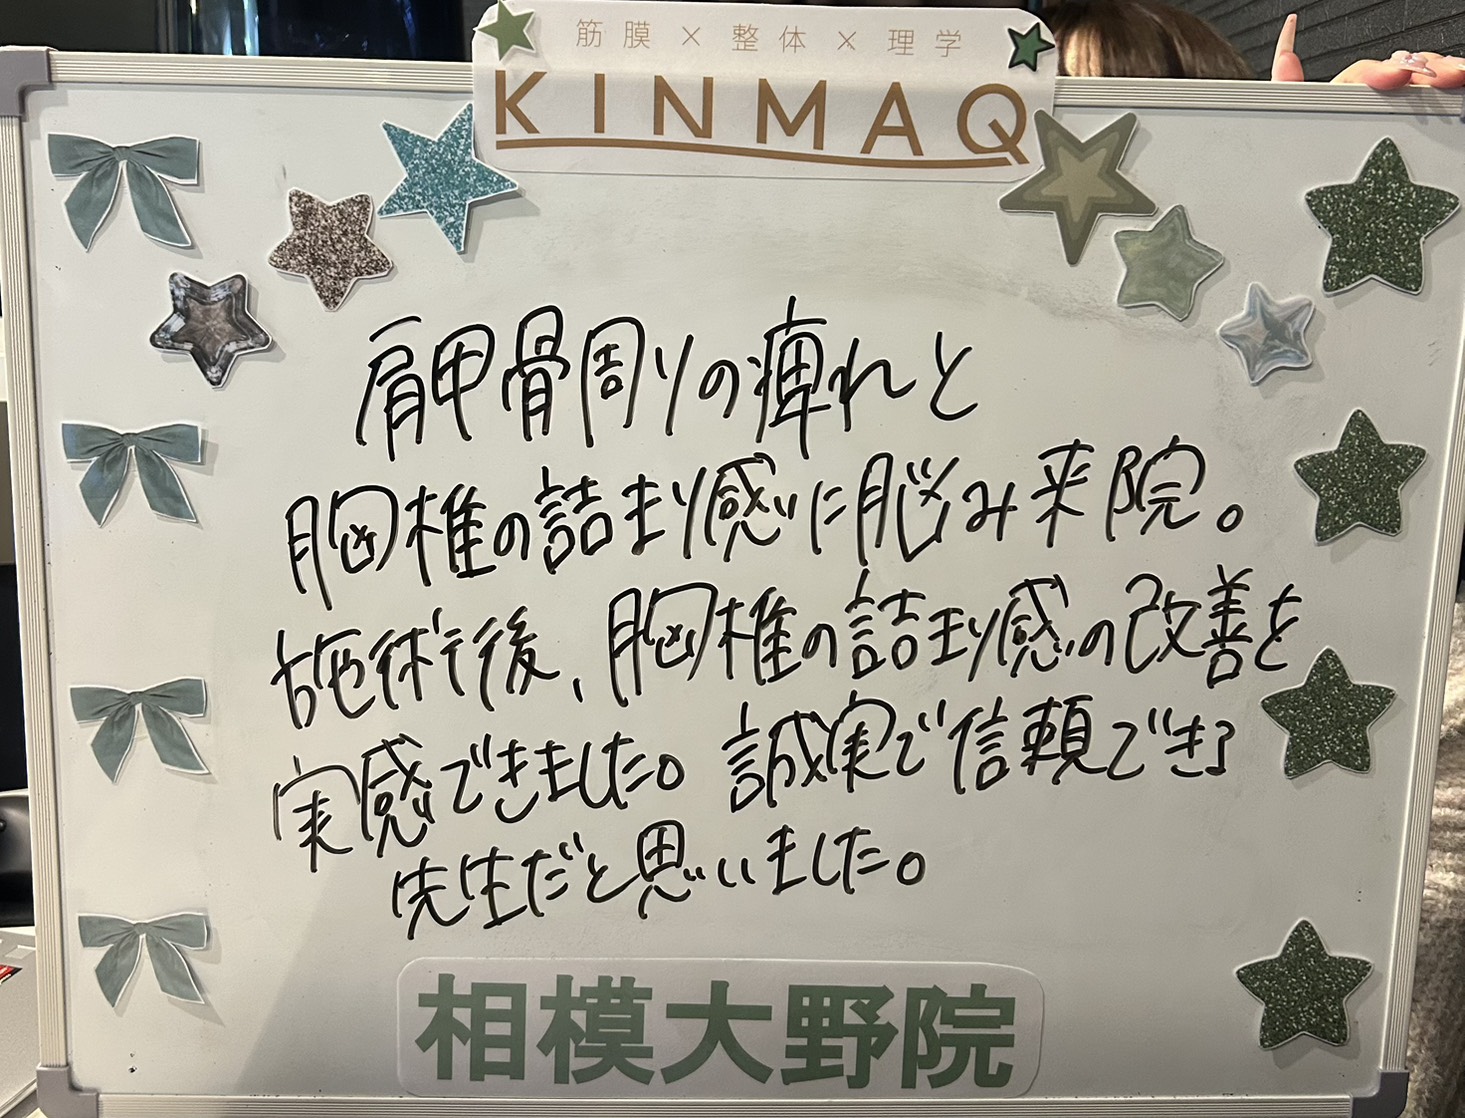 筋膜×整体×理学
KINMAQ
肩甲骨周りの痺れと
胸椎の詰まり感に悩み来院。
施術後、胸椎の詰まり感の改善を
実感できました。誠実で信頼できる
先生だと思いました。
相模大野院